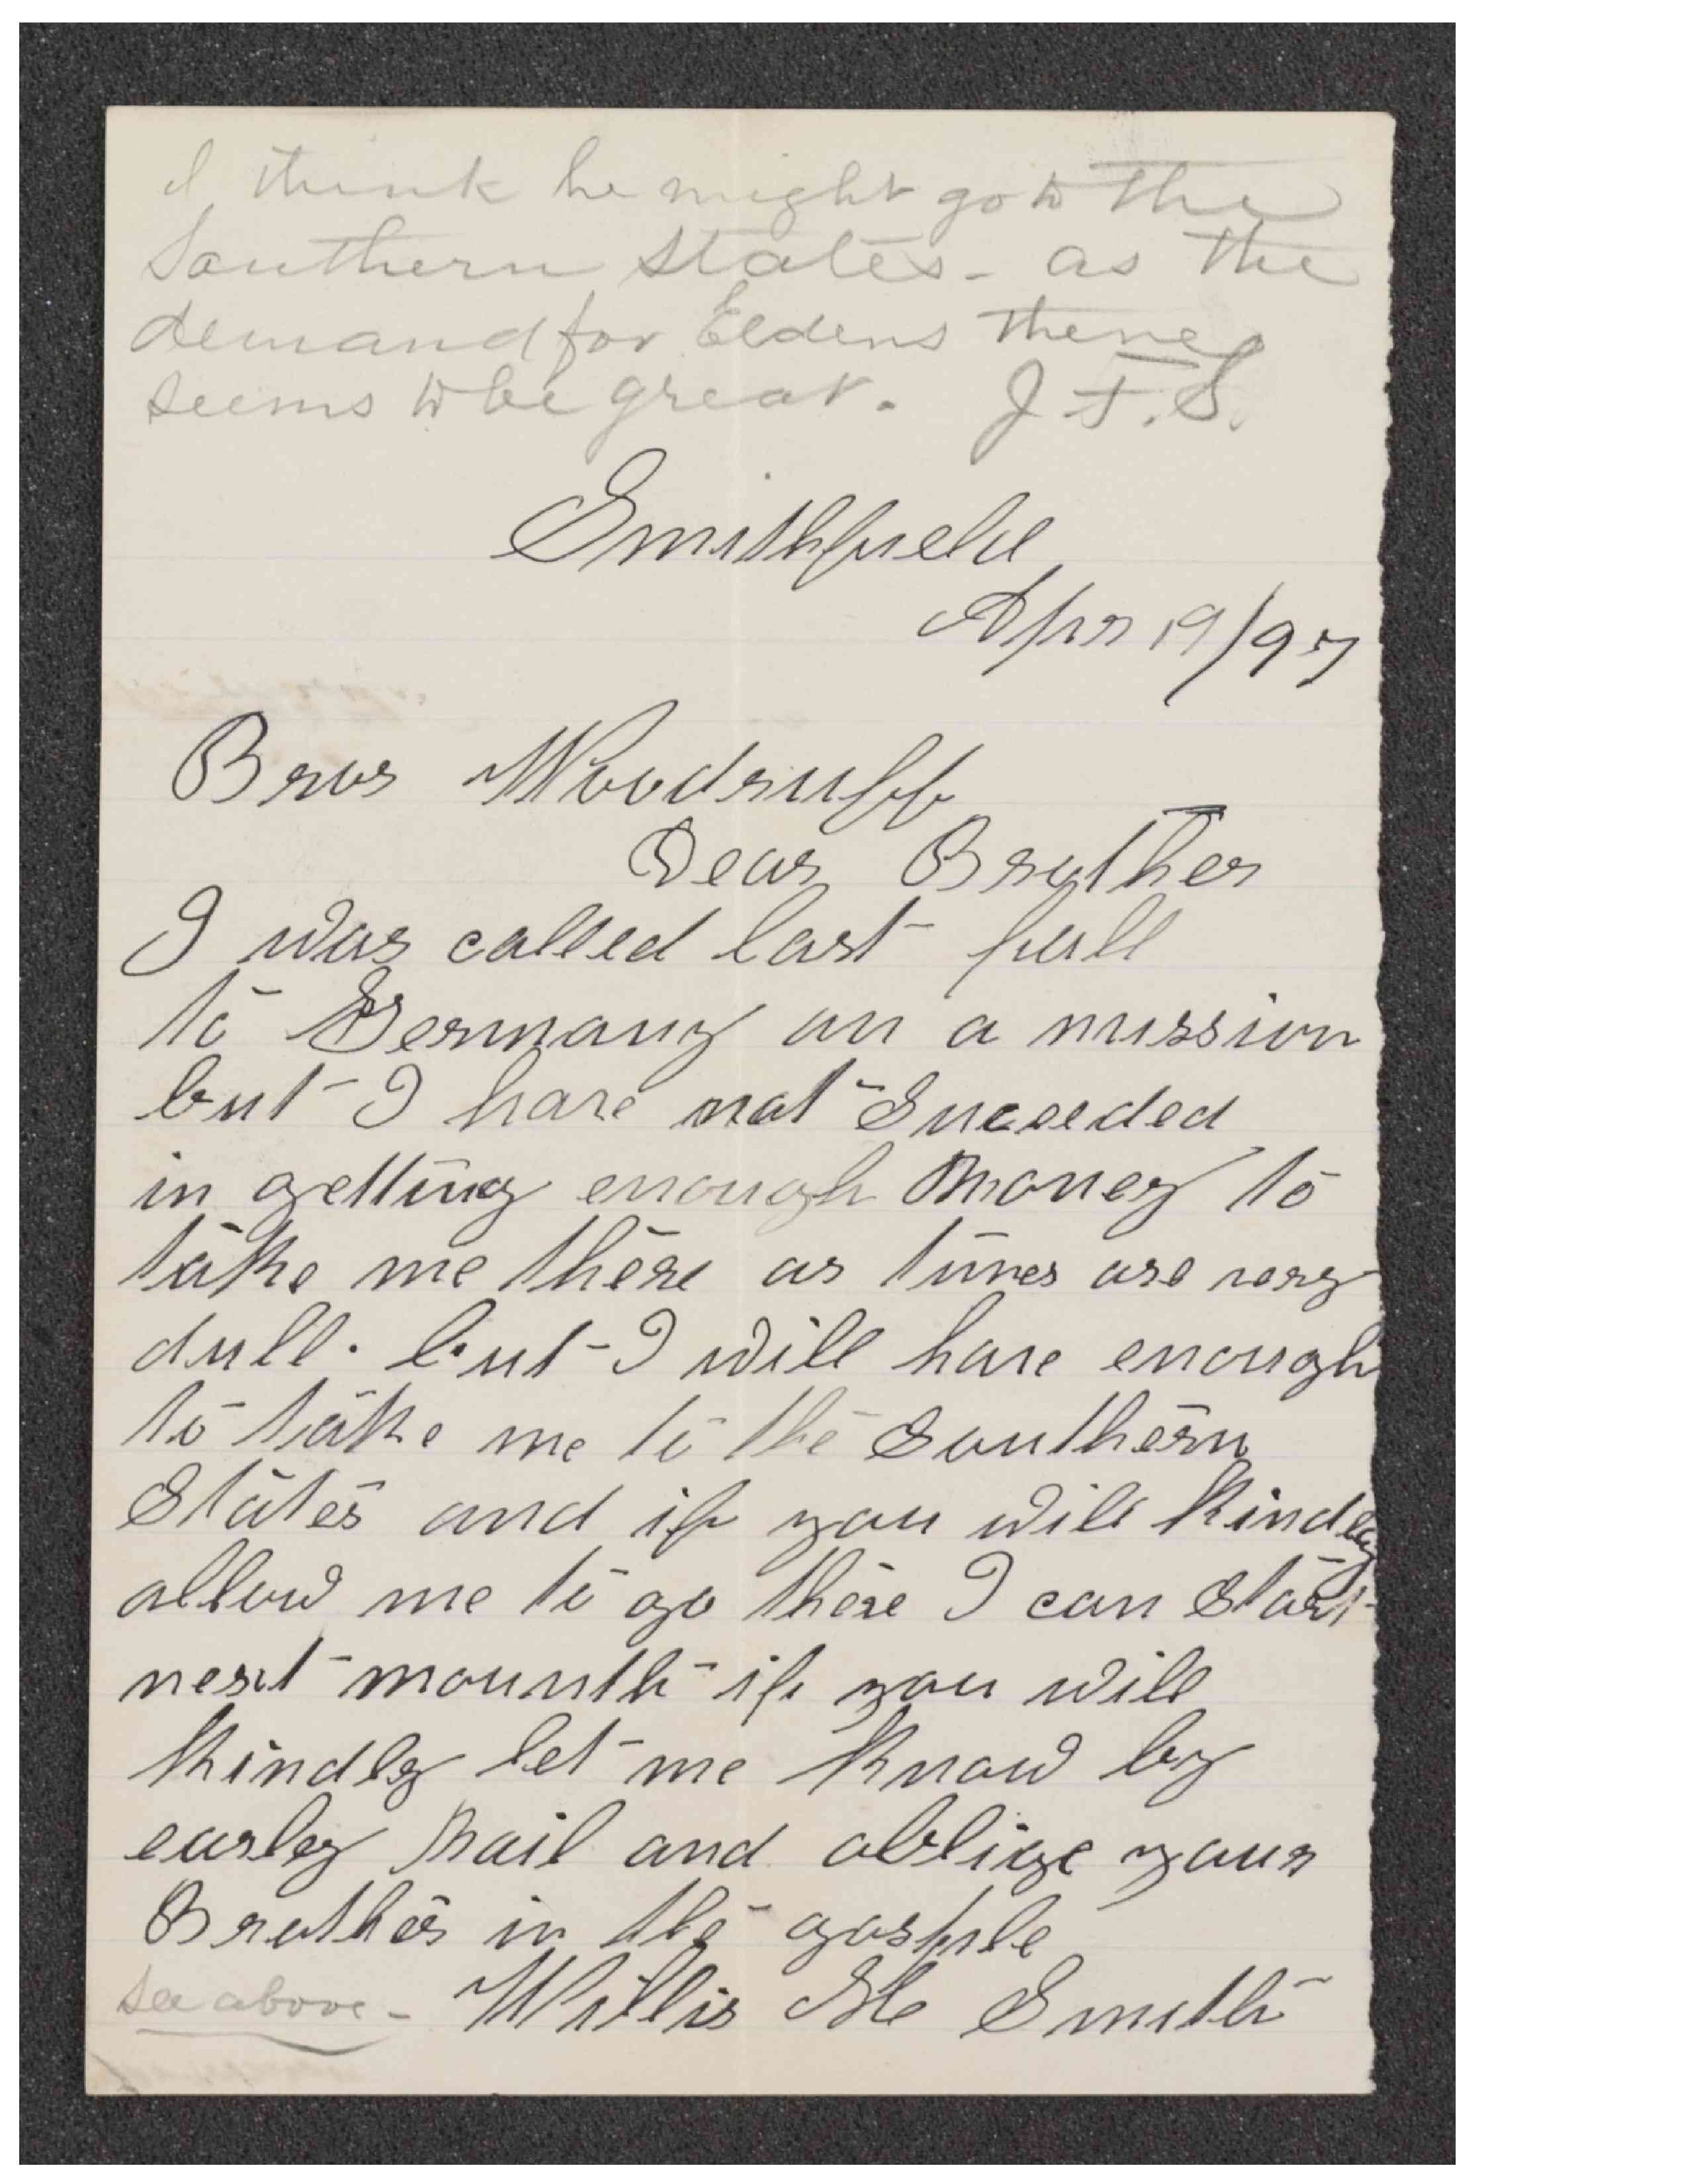 I think he might go to the
Southern States - as the
demand for Elders there
seems to be great. J. F. S.
Smithfield
Apr 19/97
Bror Woodruff
Dear Brother
I was called last fall
to Germany on a mission
but I have not Suceeded
in getting enough Money to
take me there as times are very
dull. but I will have enough
to take me to the Southern
States and if you will kindly
allow me to go there I can Start
next mounth if you will
kindly let me know by
earley Mail and oblige your
Brother in the gosple
see above - Willis Smith